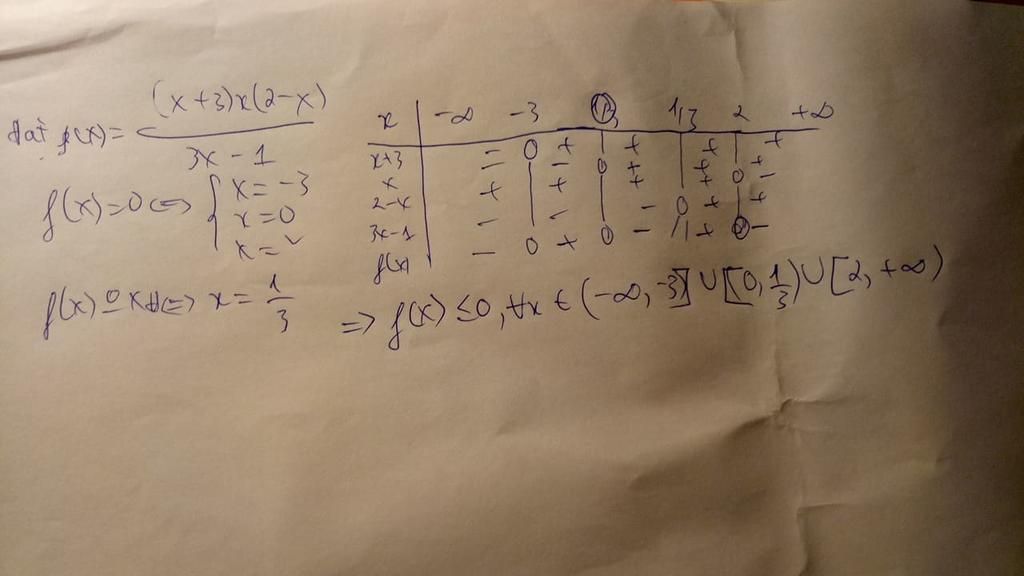 đặt f(x) = (x+3)x(2-x) / 3x - 1
f(x)=0 <=> { x = -3
x = 0
x = 2
f(x) 0 kxđ <=> x = 1/3
x | -∞ -3 0 1/3 2 +∞
x+3 | - 0 + | + | + | +
x | - | - 0 + | + | +
2-x | + | + | + | + 0 -
3x-1 | - | - | - 0 + | +
f(x) | - 0 + 0 - || + 0 -
=> f(x) ≤ 0, ∀x ∈ (-∞, -3] ∪ [0, 1/3) ∪ [2, +∞)